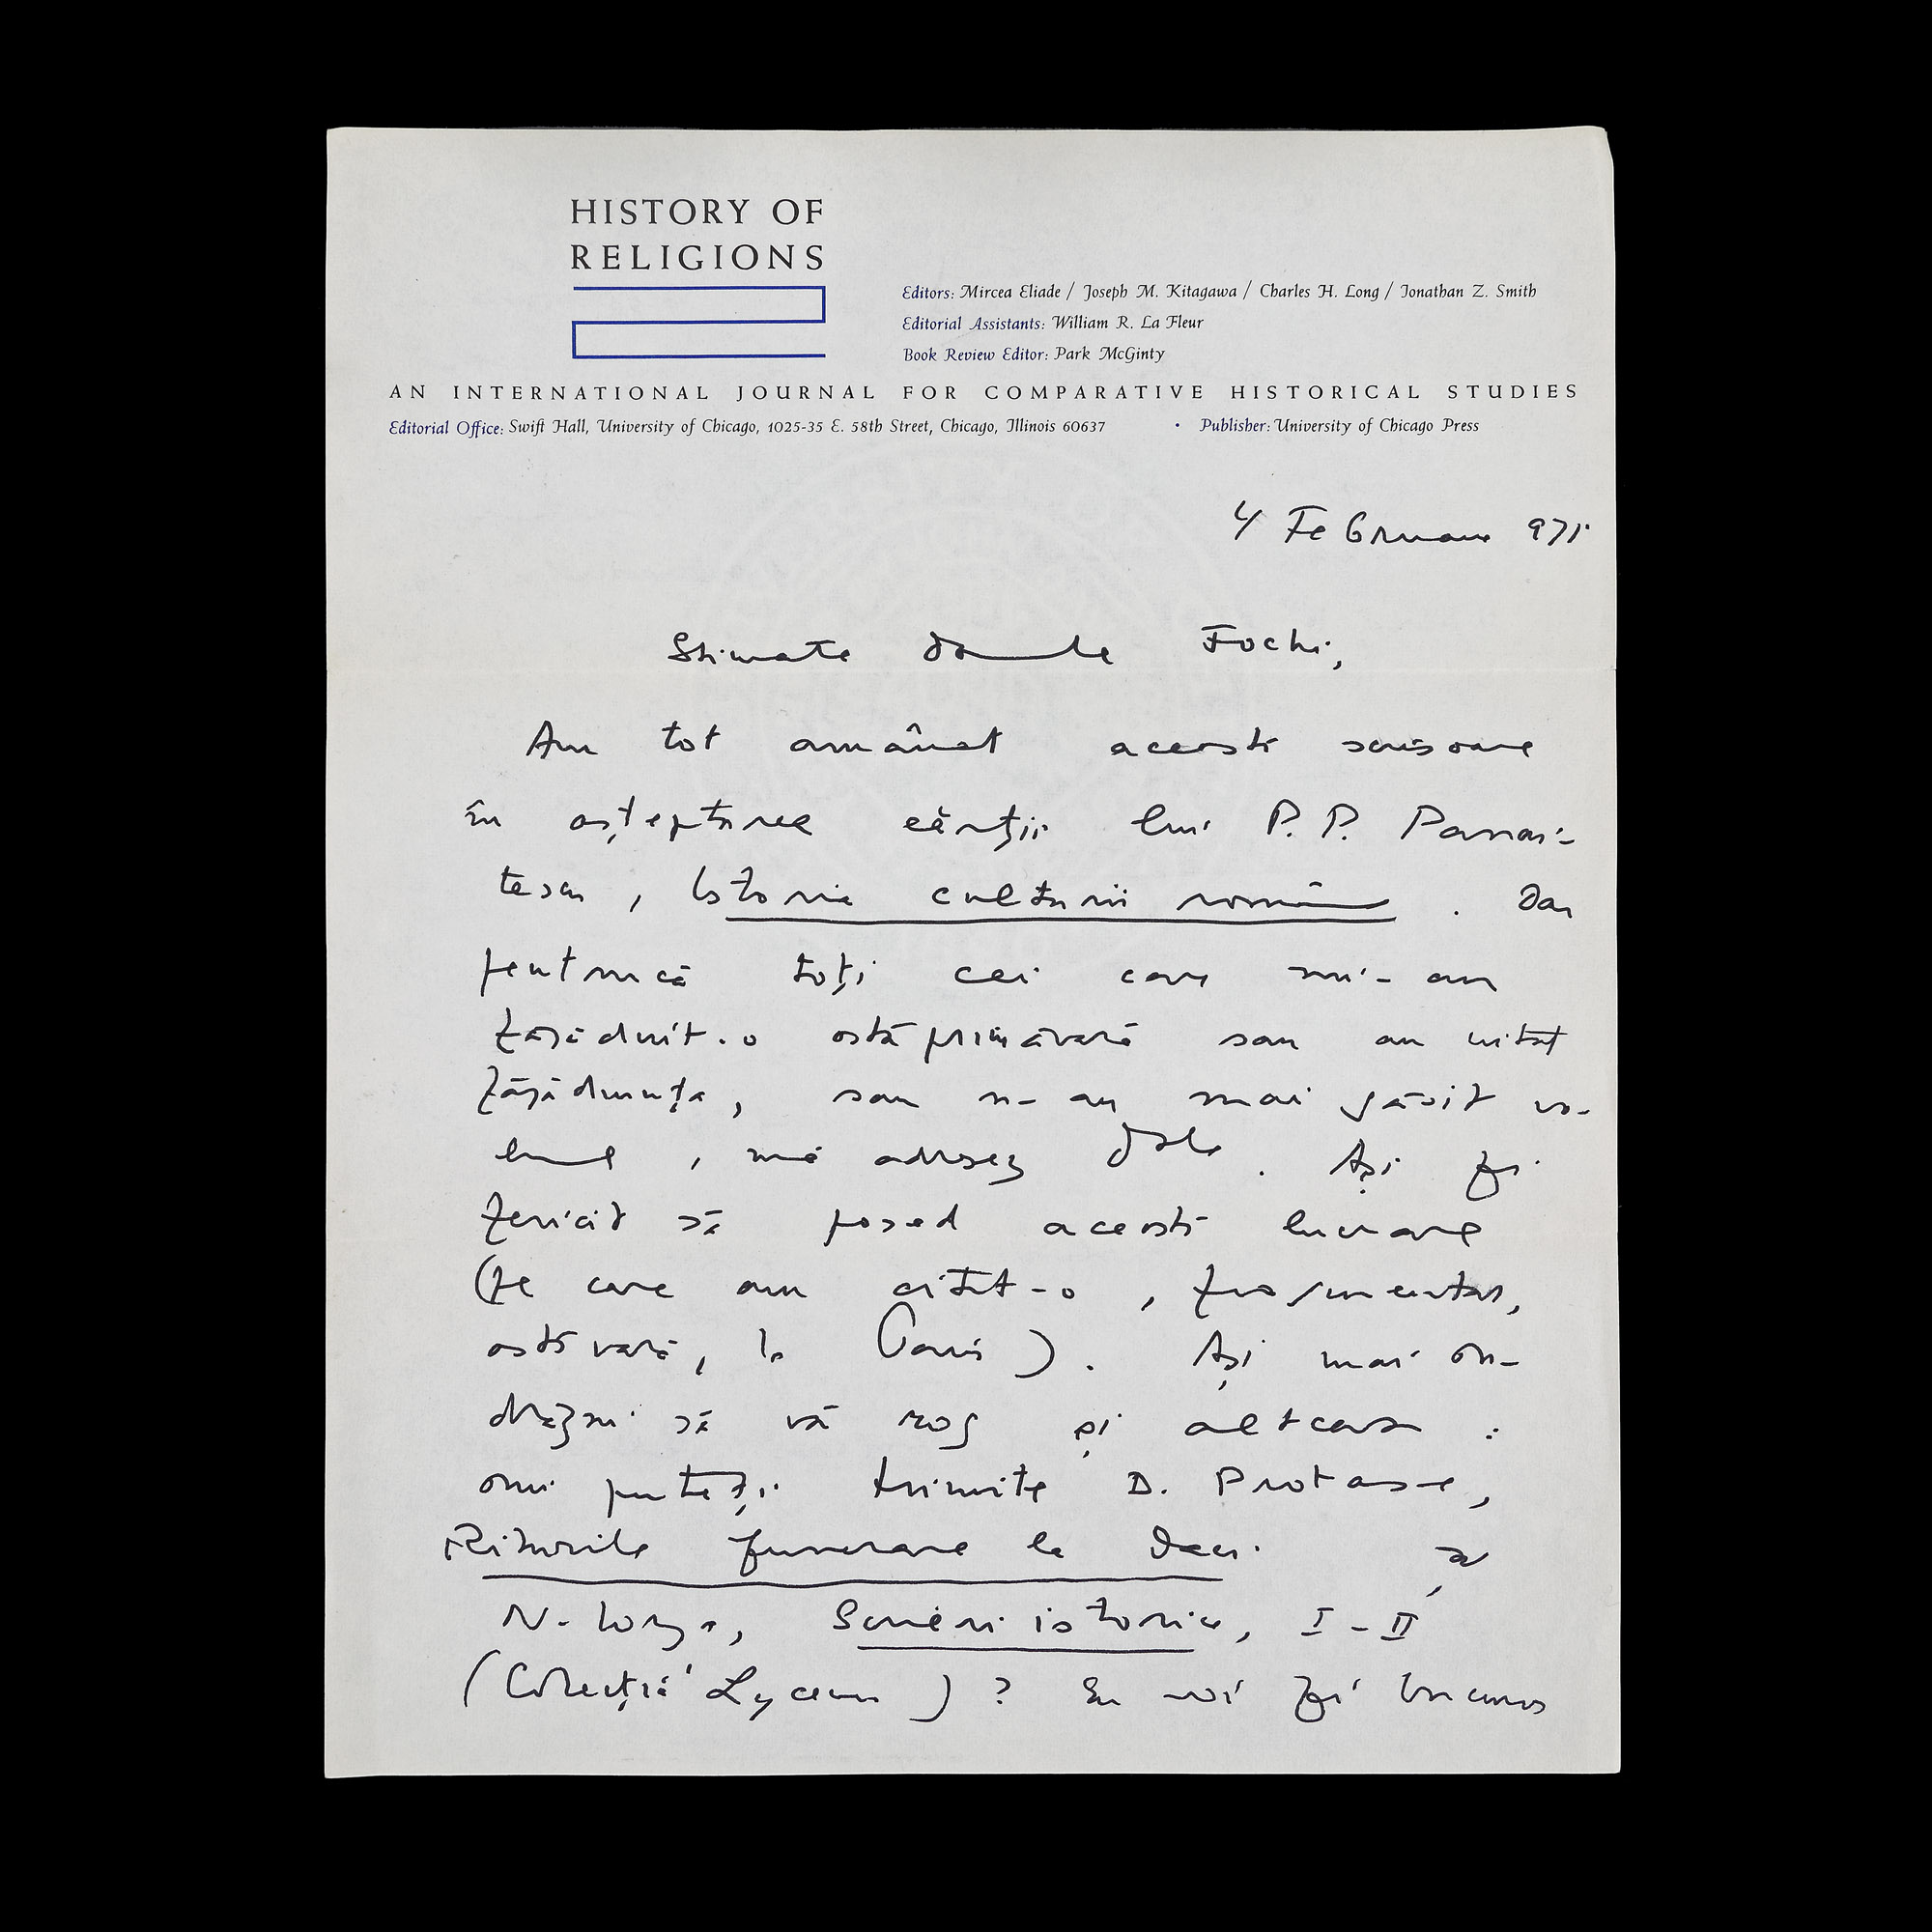 HISTORY OF
RELIGIONS
Editors: Mircea Eliade / Joseph M. Kitagawa / Charles H. Long / Jonathan Z. Smith
Editorial Assistants: William R. La Fleur
Book Review Editor: Park McGinty
AN INTERNATIONAL JOURNAL FOR COMPARATIVE HISTORICAL STUDIES
Editorial Office: Swift Hall, University of Chicago, 1025-35 E. 58th Street, Chicago, Illinois 60637 • Publisher: University of Chicago Press
4 Februarie 975
Stimate domnule Fochi,
Am tot amânat această scrisoare
în așteptarea cărții lui P. P. Panai-
tescu, Istoria culturii române. Dar
pentrucă toți cei care mi-au
făgăduit-o astă primăvară sau au uitat
făgăduința, sau n-au mai găsit vo-
lumul, mă adresez Dtale. Ași fi
fericit să posed această lucrare
(pe care am citit-o, fragmentar,
astă vară, la Paris). Ași mai în-
drăzni să vă rog și altceva:
îmi puteți trimite D. Protase,
Riturile funerare la Daci și
N. Iorga, Scrieri istorice, I-II
(Colecția Lyceum)? Eu voi fi bucuros